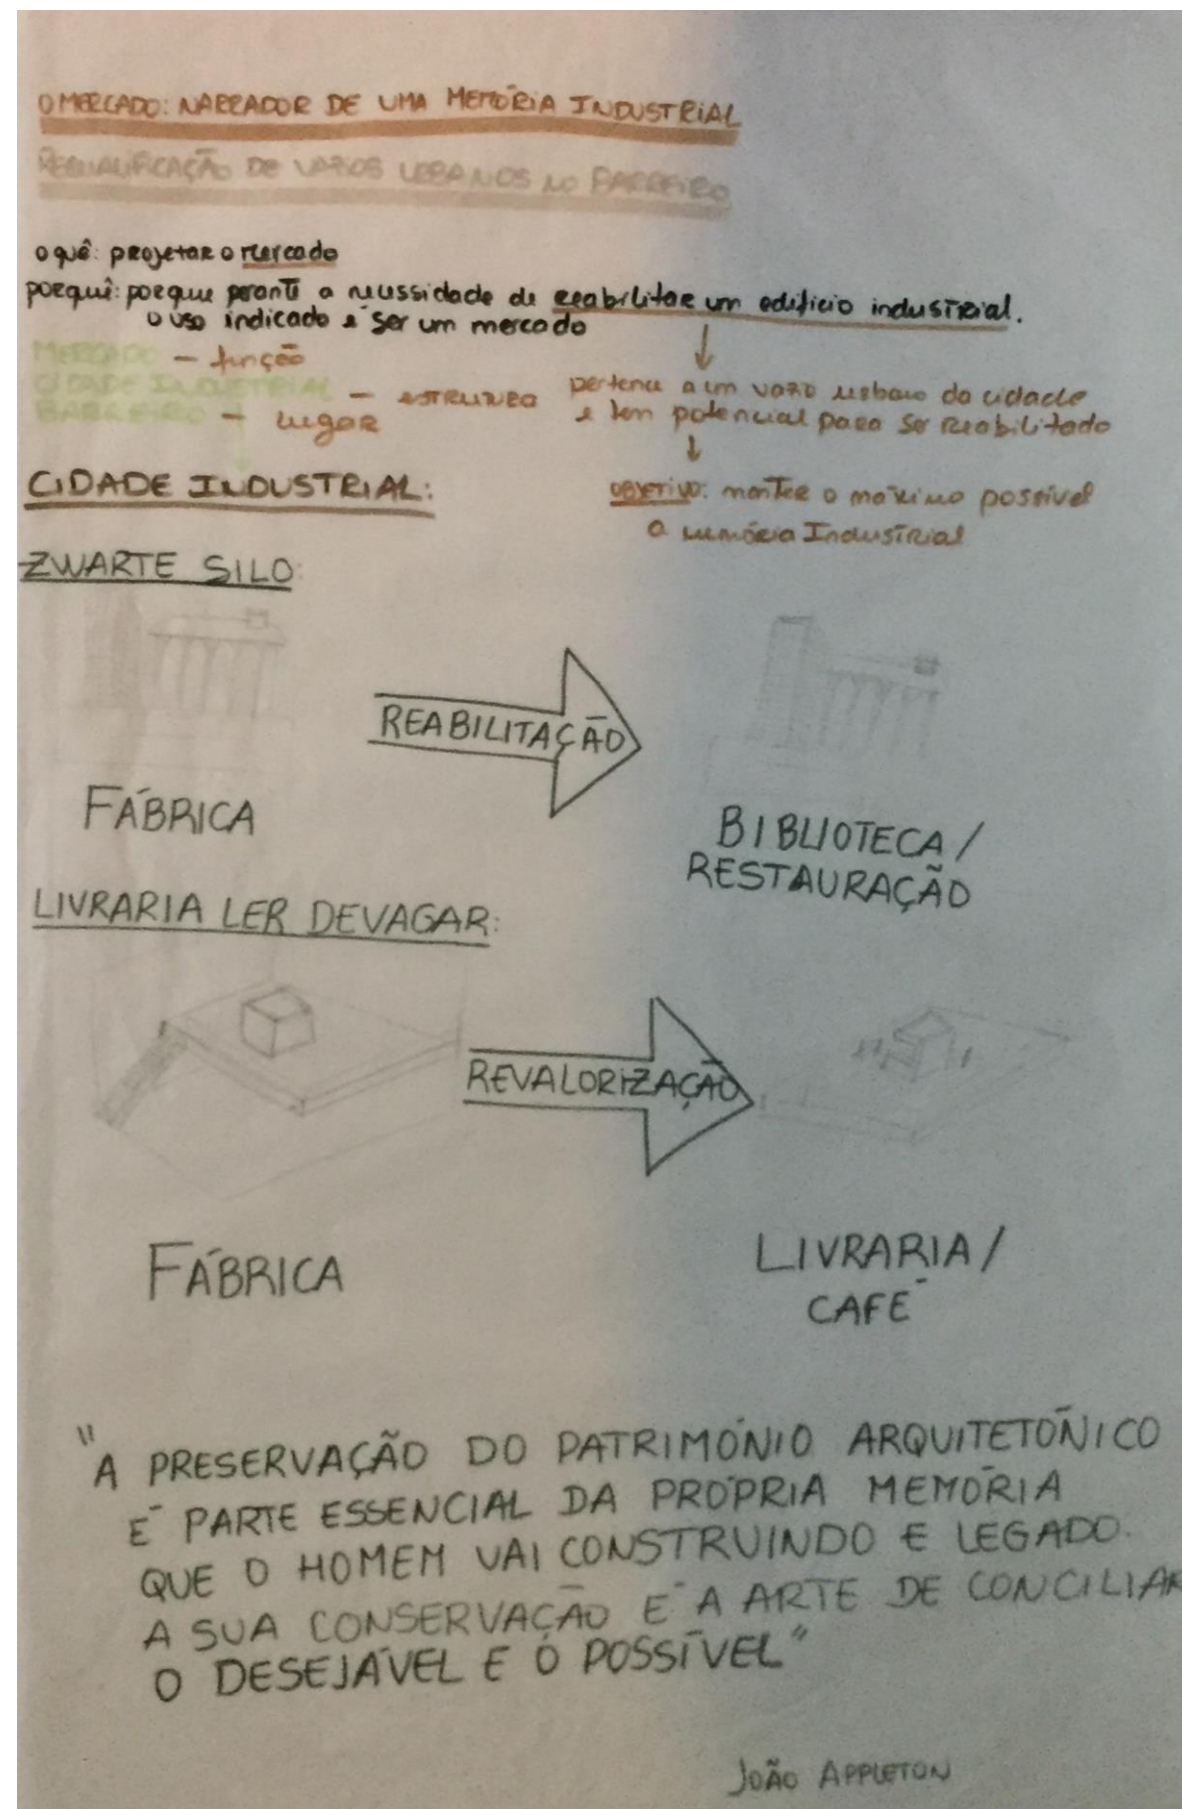 O MERCADO: NARRADOR DE UMA MEMÓRIA INDUSTRIAL
REQUALIFICAÇÃO DE VAZIOS URBANOS NO BARREIRO
o quê: projetar o mercado
porquê: porque perante a necessidade de reabilitar um edifício industrial.
o uso indicado é ser um mercado
MERCADO — função
CIDADE INDUSTRIAL — ESTRUTURA
BARREIRO — lugar
pertence a um vazio urbano da cidade
e tem potencial para ser reabilitado
OBJETIVO: manter o máximo possível
a memória Industrial
CIDADE INDUSTRIAL:
ZWARTE SILO:
REABILITAÇÃO
FÁBRICA
BIBLIOTECA/
RESTAURAÇÃO
LIVRARIA LER DEVAGAR:
REVALORIZAÇÃO
FÁBRICA
LIVRARIA/
CAFÉ
"A PRESERVAÇÃO DO PATRIMÓNIO ARQUITETÓNICO
É PARTE ESSENCIAL DA PRÓPRIA MEMÓRIA
QUE O HOMEM VAI CONSTRUINDO E LEGADO.
A SUA CONSERVAÇÃO É A ARTE DE CONCILIAR
O DESEJÁVEL E O POSSÍVEL"
JOÃO APPLETON